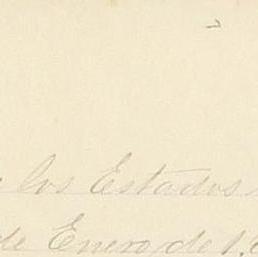 los Estados
de Enero de 1.